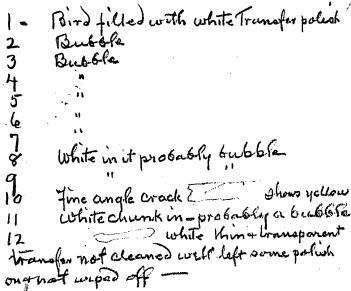 1 - Bird filled with white Transfer polish
2 Bubble
3 Bubble
4 "
5 "
6 "
7
8 White in it probably bubble
9 " "
10 Fine angle crack shows yellow
11 White chunk in - probably a bubble
12 white thin & transparent
Transfer not cleaned well left some polish
or not wiped off —